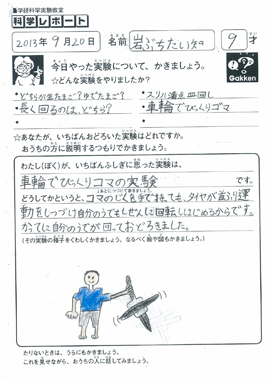 学研科学実験教室
科学レポート
2013年9月20日 名前 岩ぶちたい知 9才
今日やった実験について、かきましょう。
Gakken
☆どんな実験をやりましたか?
・どちらが生たまご?ゆでたまご? ・スリル満点皿回し
・長く回るのは、どちら? ・車輪でびっくりゴマ
☆あなたが、いちばんおどろいた実験はどれですか。
おうちの方に説明するつもりでかきましょう。
わたし(ぼく)が、いちばんふしぎに思った実験は、
車輪でびっくりコマの実験 です。
どうしてかというと、コマのじくを手で持っても、タイヤが
運動をしつづけ自分のうでもしぜんに回転しはじめるからです。
かってに自分のうでが回っておどろきました。
(その実験の様子をくわしくかきましょう。なるべく絵や図もかきましょう。)
たりないときは、うらにもかきましょう。
これを見せながら、おうちの人に話してみましょう。